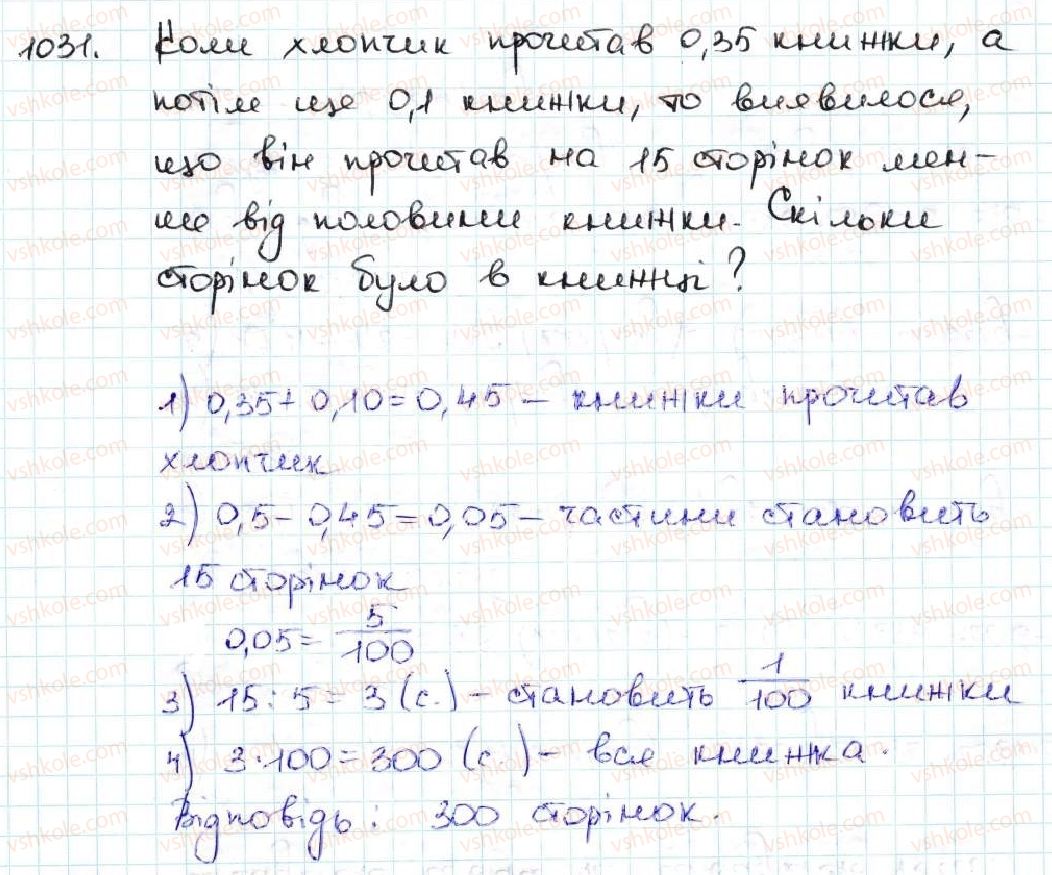 1031. Коли хлопчик прочитав 0,35 книжки, а
потім ще 0,1 книжки, то виявилося,
що він прочитав на 15 сторінок мен-
ше від половини книжки. Скільки
сторінок було в книжці?
1) 0,35+0,10=0,45 – книжки прочитав
хлопчик
2) 0,5-0,45=0,05 – частини становить
15 сторінок
0,05= 5/100
3) 15:5=3 (с.) – становить 1/100 книжки
4) 3·100=300 (с.) – вся книжка.
Відповідь: 300 сторінок.